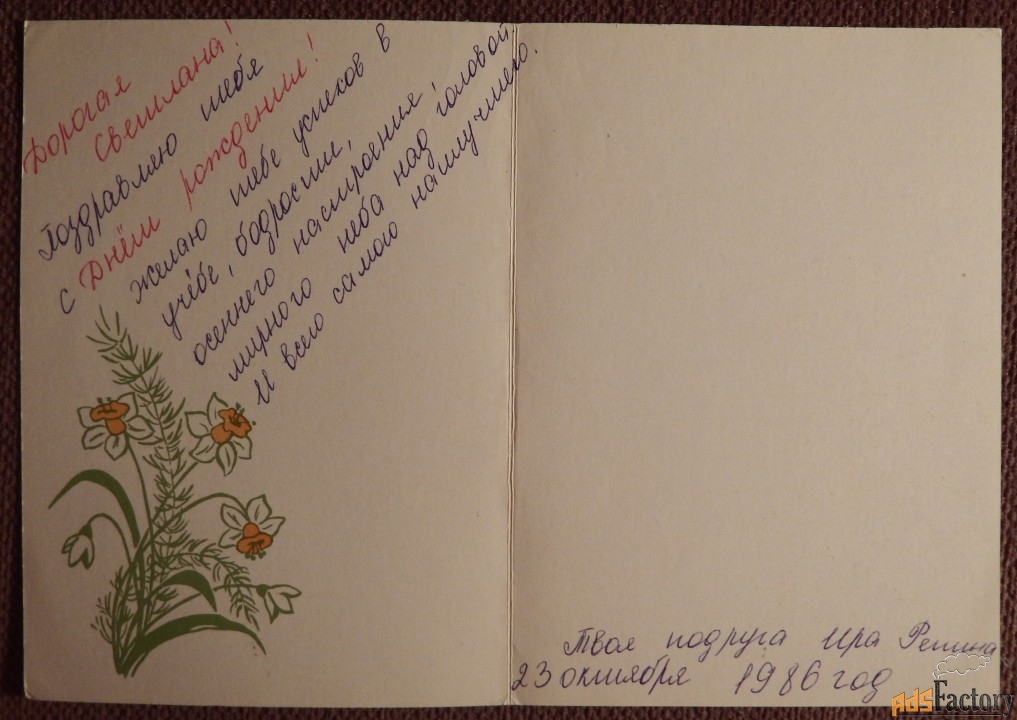 Дорогая
Светлана!
Поздравляю тебя
с Днём рождения!
желаю тебе успехов в
учёбе, бодрости,
осеннего настроения
мирного неба над головой.
И всего самого наилучшего.
Твоя подруга Ира Репина
23 октября 1986 год
AdsFactory